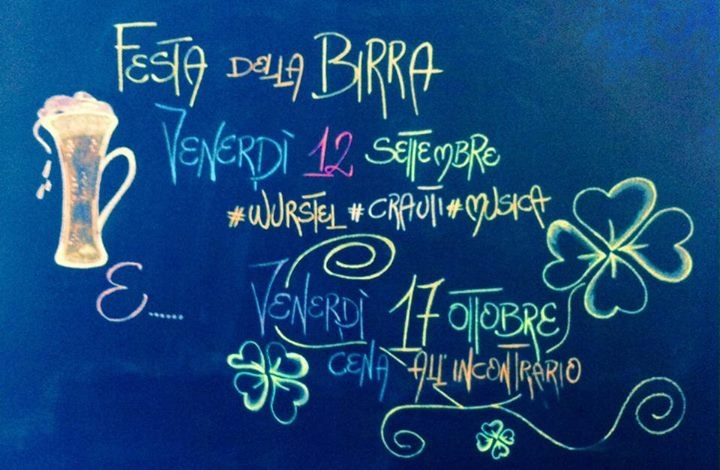 FESTA DELLA BIRRA
VENERDÌ 12 SETTEMBRE
#WURSTEL #CRAUTI #MUSICA
E......
VENERDÌ 17 OTTOBRE
CENA ALL'INCONTRARIO